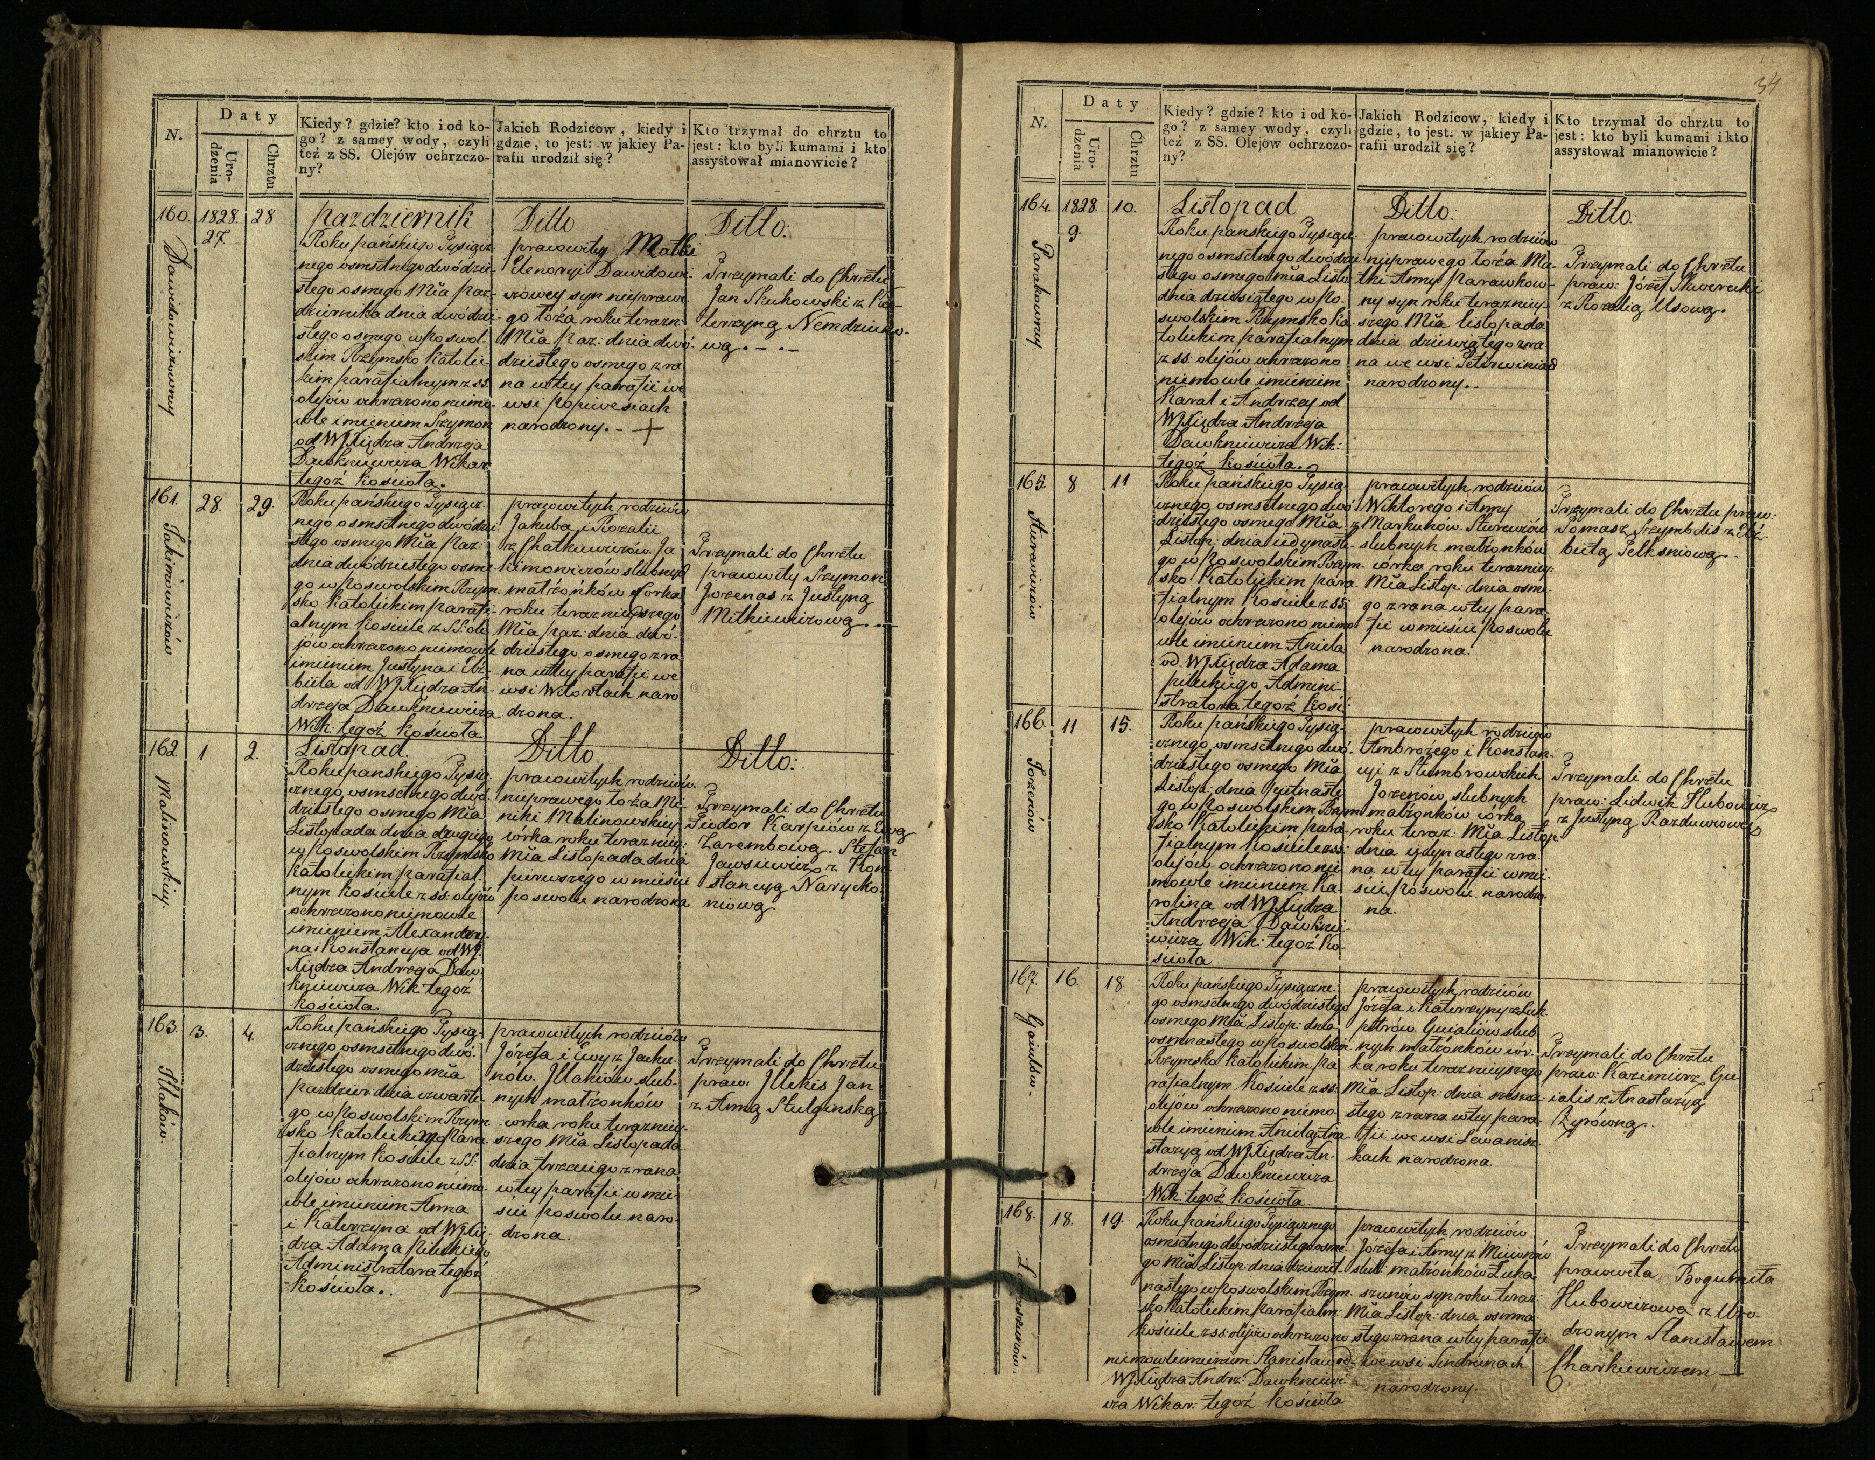 N.
Daty
Urodzenia
Chrztu
Kiedy? gdzie? kto i od ko-
go? z samey wody, czyli
też z SS. Olejów ochrzczo-
ny?
Jakich Rodziców, kiedy i
gdzie, to jest: w jakiey Pa-
rafii urodził się?
Kto trzymał do chrztu to
jest: kto byli kumami i kto
assystował mianowicie?
160.
1828.
27
28
pazdziernik
Roku pańskiego Tysiącz-
nego osmsetnego dwódzie-
stego osmego Mca paz-
dziernika dnia dwódzie-
stego osmego w poswol-
skim Rzymsko katolic-
kim parafialnym z ss
olejów ochrzczono niemo-
wle imieniem Szymon
od WJ Xiędza Andrzeja
Dawkniewicza Wikar
tegoż kościoła.
Ditto
pracowitey Matki
Elenoryi Dawidowi-
czowey syn niepraw-
go łoża roku terazn:
Mca paz: dnia dwó-
dziestego osmego zra-
na w tey parafii we
wsi
narodzony. +
Ditto:
Trzymali do Chrztu
Jan Skuhowski z Ka-
terzyną
wą.
161.
28.
29.
Jakimowiczów
Roku pańskiego Tysiącz-
nego osmsetnego dwódzie-
stego osmego Mca paz:
dnia dwódziestego osme-
go w poswolskim Rzym-
sko katolickim parafi-
alnym kościele z SS. ole-
jów ochrzczono niemowle
imieniem Justyna i Elż-
bieta od WJ Xiędza An-
drzeja Dawkniewicza
Wik: tegoż kościoła
pracowitych rodziców
Jakuba i Rozalii
z Chatkiewiczów Ja-
kimowiczów slubnych
matżonków córka
roku teraznieyszego
Mca paz: dnia dwó-
dziestego osmego zra-
na w tey parafii we
wsi
naro-
dzona.
Trzymali do Chrztu
pracowity Szymon
Jozenas z Justyną
Mitkiewiczową
162.
1
2.
Malinowskiey.
Listopad
Roku panskiego Tysią-
cznego osmsetnego dwó-
dziestego osmego Mca
Listopada dnia drugiego
w poswolskim Rzymsko
katolickim parafial-
nym kościele z ss olejów
ochrzczono niemowle
imieniem Alexandry-
na i Konstancya od WJ.
Xiędza Andrzeja Daw-
kniewicza Wik tegoż
kościoła.
Ditto
pracowitych rodziców
nieprawego łoża Mo-
niki Malinowskiey
córka roku terazniey:
Mca Listopada dnia
pierwszego w miescie
poswolu narodzona
Ditto:
Trzymali do Chrztu
Teodor Karpiów z Ewą
Zarembową. Stefan
z Kon-
stancyą Narycko-
niową
163.
3.
4.
Illaków
Roku pańskiego Tysią-
cznego osmsetnego dwó-
dziestego osmego mca
pazdzier: dnia czwarte-
go w poswolskim Rzym-
sko katolickim para-
fialnym kościele z SS.
olejów ochrzczono niemo-
wle imieniem Anna
i Katerzyna od WJ Xię-
dza Adama
Administratora tegoż
kościoła.
pracowitych rodziców
Józefa i Ewy z Jacku-
nów. Illakiów slub-
nych matżonków
córka roku terazniey-
szego Mca Listopada
dnia trzeciego zrana
w tey parafii w mie-
scie poswolu naro-
dzona.
Trzymali do Chrztu
praw: Illekis Jan
z Anną Stulginską
34
N.
Daty
Urodzenia
Chrztu
Kiedy? gdzie? kto i od ko-
go? z samey wody, czyli
też z SS. Olejów ochrzczo-
ny?
Jakich Rodziców, kiedy i
gdzie, to jest: w jakiey Pa-
rafii urodził się?
Kto trzymał do chrztu to
jest: kto byli kumami i kto
assystował mianowicie?
164.
1828.
9.
10.
Listopad
Roku panskiego Tysiącz-
nego osmsetnego dwódzie-
stego osmego Mca Listo-
dnia dziesiątego w po-
swolskim Rzymsko ka-
tolickim parafialnym
z ss. olejów ochrzczono
niemowle imieniem
Karal i Andrzey od
WJ Xiędza Andrzeja
Dawkniewicza Wik:
tegoż kościoła.
Ditto:
pracowitych rodziców
nieprawego łoża Ma-
tki Anny
ny syn roku terazniey-
szego Mca listopada
dnia dziewiątego zra-
na we wsi
narodzony.
Ditto.
Trzymali do Chrztu
praw: Józef
z Rozalią Usową.
165.
8
11
Roku pańskiego Tysią-
cznego osmsetnego dwó-
dziestego osmego Mca
Listop: dnia iedynaste-
go w poswolskim Rzym-
sko katolickim para-
fialnym kościele z SS.
olejów ochrzczono niemo-
wle imieniem Aniela
od WJ Xiędza Adama
Admini-
stratora tegoż kości:
pracowitych rodziców
Wiktorego i Anny
z Markunów
slubnych matżonków
córka roku terazniey:
Mca Listop: dnia osme-
go zrana w tey para-
fii w miescie poswolu
narodzona.
Trzymali do Chrztu praw:
Tomasz Szymbelis z Elż-
bietą
166.
11
15.
Jozenów
Roku pańskiego Tysią-
cznego osmsetnego dwó-
dziestego osmego Mca
Listop: dnia pietnaste-
go w poswolskim Rzym-
sko katolickim para-
fialnym kościele z ss:
olejów ochrzczono nie-
mowle imieniem Ka-
rolina od WJ Xiędza
Andrzeja Dawknie-
wicza Wik: tegoż ko-
ścioła
pracowitych rodziców
Ambrożego i Konstan-
cyi z Stumbrowskich
Jozenów slubnych
matżonków córka
roku teraz: Mca Listop:
dnia iedynastego zra-
na w tey parafii w mie-
scie poswolu narodzo-
na.
Trzymali do Chrztu
praw: Ludwik Hubowicz
z Justyną
167.
16.
18
Roku pańskiego Tysiączne-
go osmsetnego dwódziestego
osmego Mca Listop: dnia
osmnastego w poswolskim
Rzymsko katolickim pa-
rafialnym kościele z ss:
olejów ochrzczono niemo-
wle imieniem
od WJ Xiędza An-
drzeja Dawkniewicza
Wik. tegoż kościoła
pracowitych rodziców
Józefa i Katerzyny z Luk-
slub-
nych matżonków cór-
ka roku teraznieyszego
Mca Listop: dnia szesna-
stego zrana w tey para-
fii we wsi
kach narodzona.
Trzymali do Chrztu
praw: Kazimierz Gu-
ialis z Anastazyą
Żyrówną.
168.
18.
19.
Roku pańskiego Tysiącznego
osmsetnego dwódziestego osme-
go Mca Listop: dnia dziewięt-
nastego w poswolskim Rzym-
sko katolickim parafialn:
kościele z ss olejów ochrzczono
niemowle imieniem Stanisław od
WJ Xiędza Andrz: Dawkniewi-
cza Wikar: tegoż kościoła
pracowitych rodziców
Józefa i Anny z
slub: matżonków Łuka-
szewiczów syn roku teraz:
Mca Listop: dnia osmna-
stego zrana w tey parafii
we wsi
narodzony.
Trzymali do Chrztu
pracowita Bogumiła
Hubowiczowa z Uro-
dzonym Stanisławem
Charkiewiczem